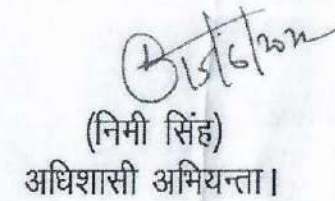 15/6/2022
(निमी सिंह)
अधिशासी अभियन्ता।